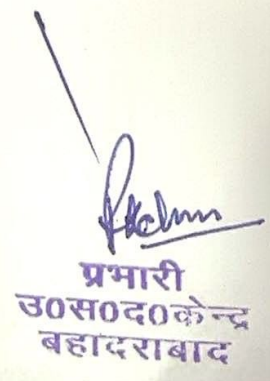 प्रभारी
उ0स0द0केन्द्र
बहादराबाद